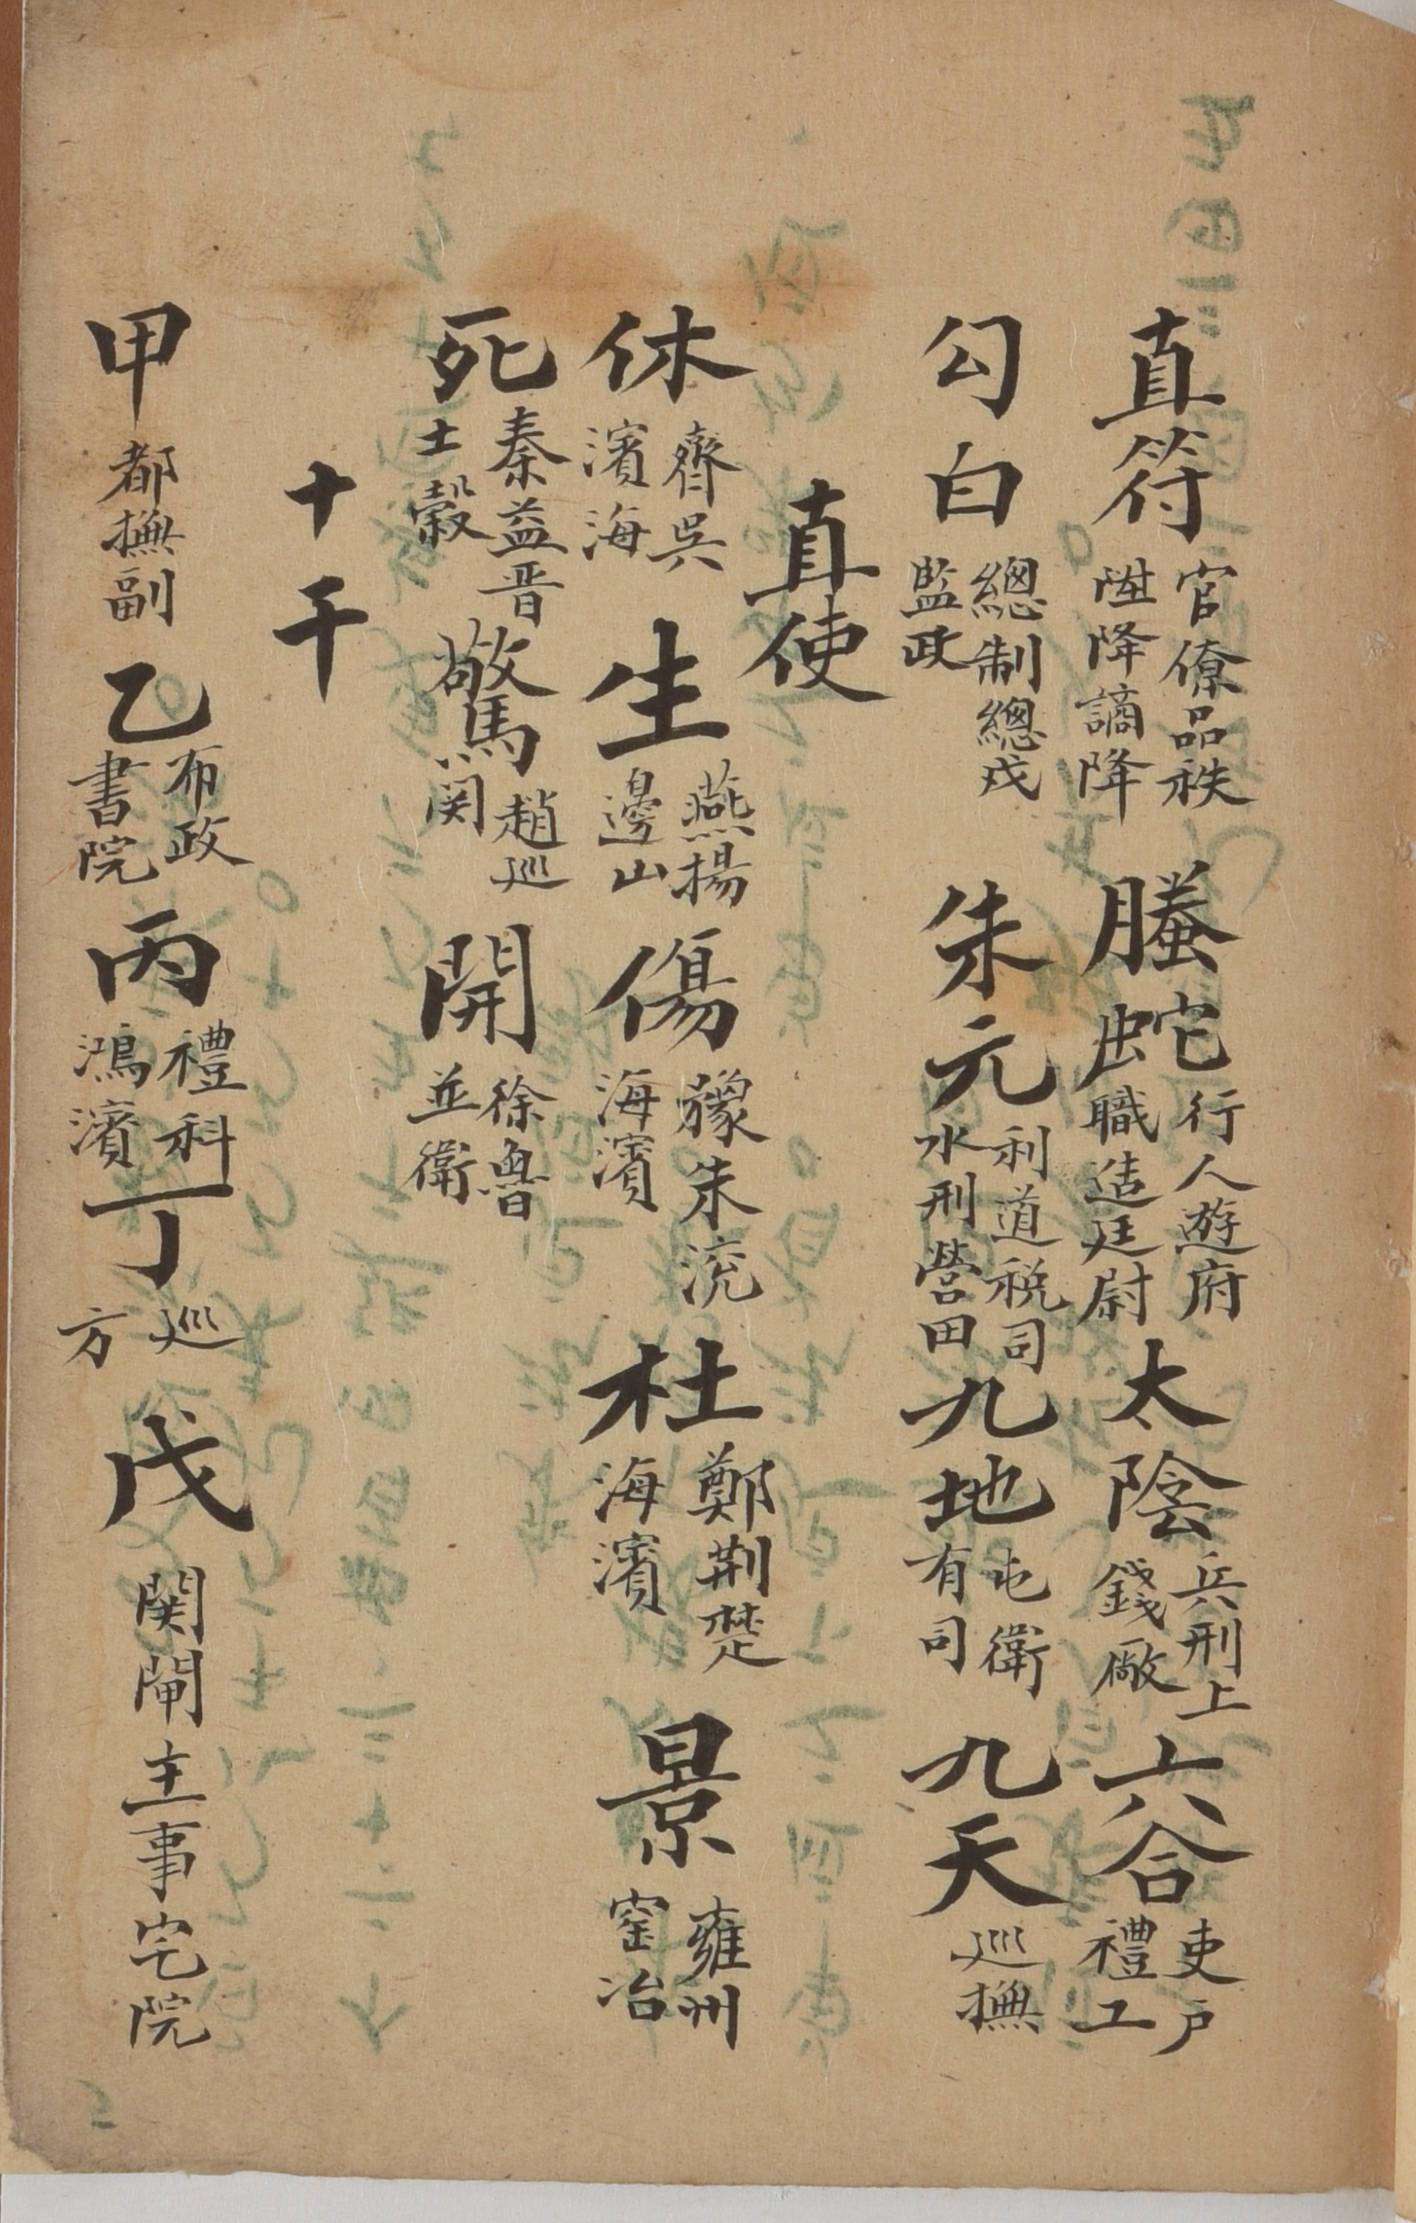 直符官僚品秩陞降謫降 螣蛇行人遊府職造廷尉 太陰兵刑上錢廠 六合吏户禮工
勾白總制總戍監政 朱元利道税司水刑營田 九地屯衛有司 九天巡撫
直使
休齊吳濱海 生燕揚邊山 傷豫朱流海濱 杜鄭荆楚海濱 景雍州窑冶
死秦益晋士穀 驚趙巡関 開徐魯並衛
十干
甲都撫副 乙布政書院 丙禮科鴻濱 丁巡方 戊関閘主事宅院